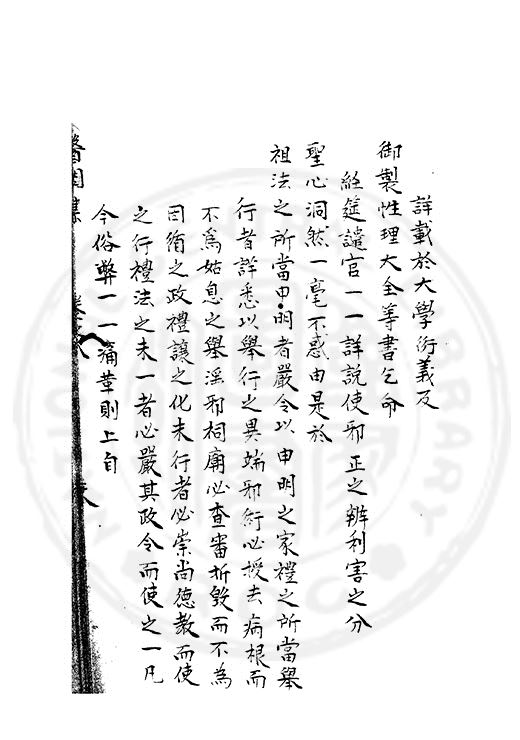 詳載於大學衍義及
御製性理大全等書乞命
經筵講官一一詳說使邪正之辨利害之分
聖心洞然一毫不惑由是於
祖法之所當申明者嚴令以申明之家禮之所當舉
行者詳悉以舉行之異端邪術必授去病根而
不為姑息之舉淫邪祠廟必查審折毀而不為
因循之政禮讓之化未行者必崇尚德教而使
之行禮法之未一者必嚴其政令而使之一凡
今俗弊一一痛革則上自